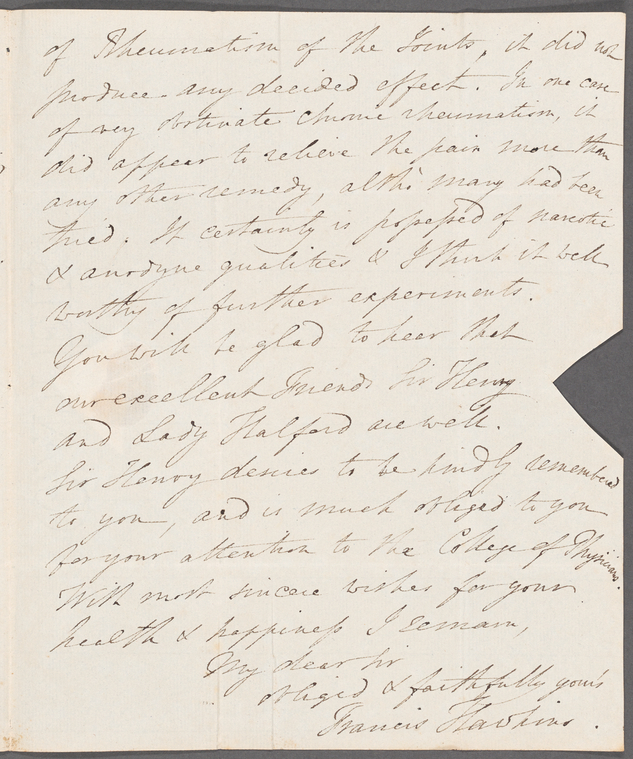 of Rheumatism of the Joints, it did not
produce any decided effect. In one case
of very obstinate chronic rheumatism, it
did appear to relieve the pain more than
any other remedy, altho' many had been
tried. It certainly is possessed of narcotic
& anodyne qualities & I think it well
worthy of further experiments.
You will be glad to hear that
our excellent Friends Sir Henry
and Lady Halford are well.
Sir Henry desires to be kindly remembered
to you, and is much obliged to you
for your attention to the College of Physicians.
With most sincere wishes for your
health & happiness I remain,
My dear Sir
obliged & faithfully yours
Francis Hawkins.